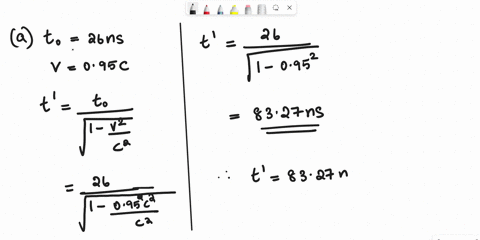 (a) t₀ = 26ns
V = 0.95C
t' = t₀ / √(1 - V²/C²)
= 26 / √(1 - 0.95²C²/C²)
t' = 26 / √(1 - 0.95²)
= 83.27ns
∴ t' = 83.27n